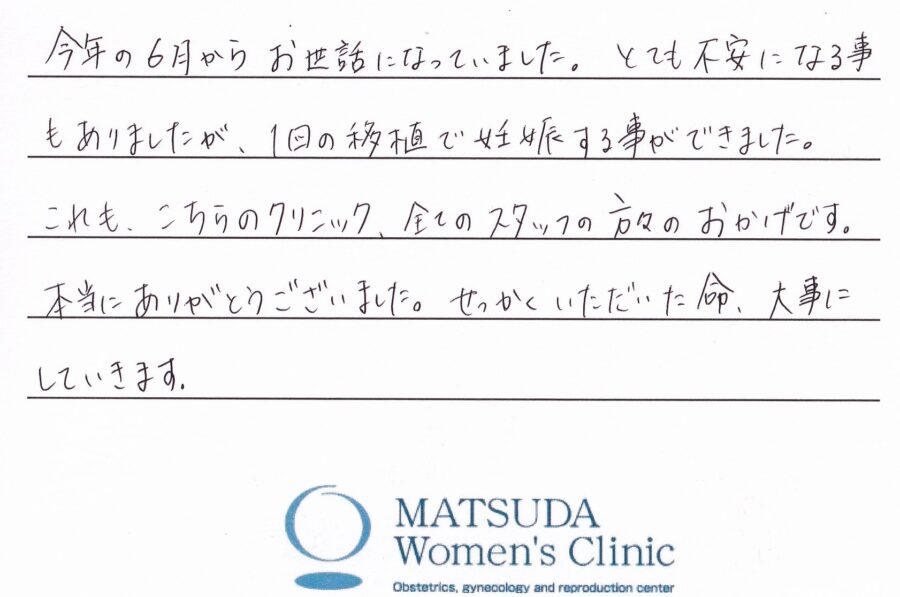 今年の6月からお世話になっていました。とても不安になる事
もありましたが、1回の移植で妊娠する事ができました。
これも、こちらのクリニック、全てのスタッフの方々のおかげです。
本当にありがとうございました。せっかくいただいた命、大事に
していきます.
MATSUDA
Women's Clinic
Obstetrics, gynecology and reproduction center